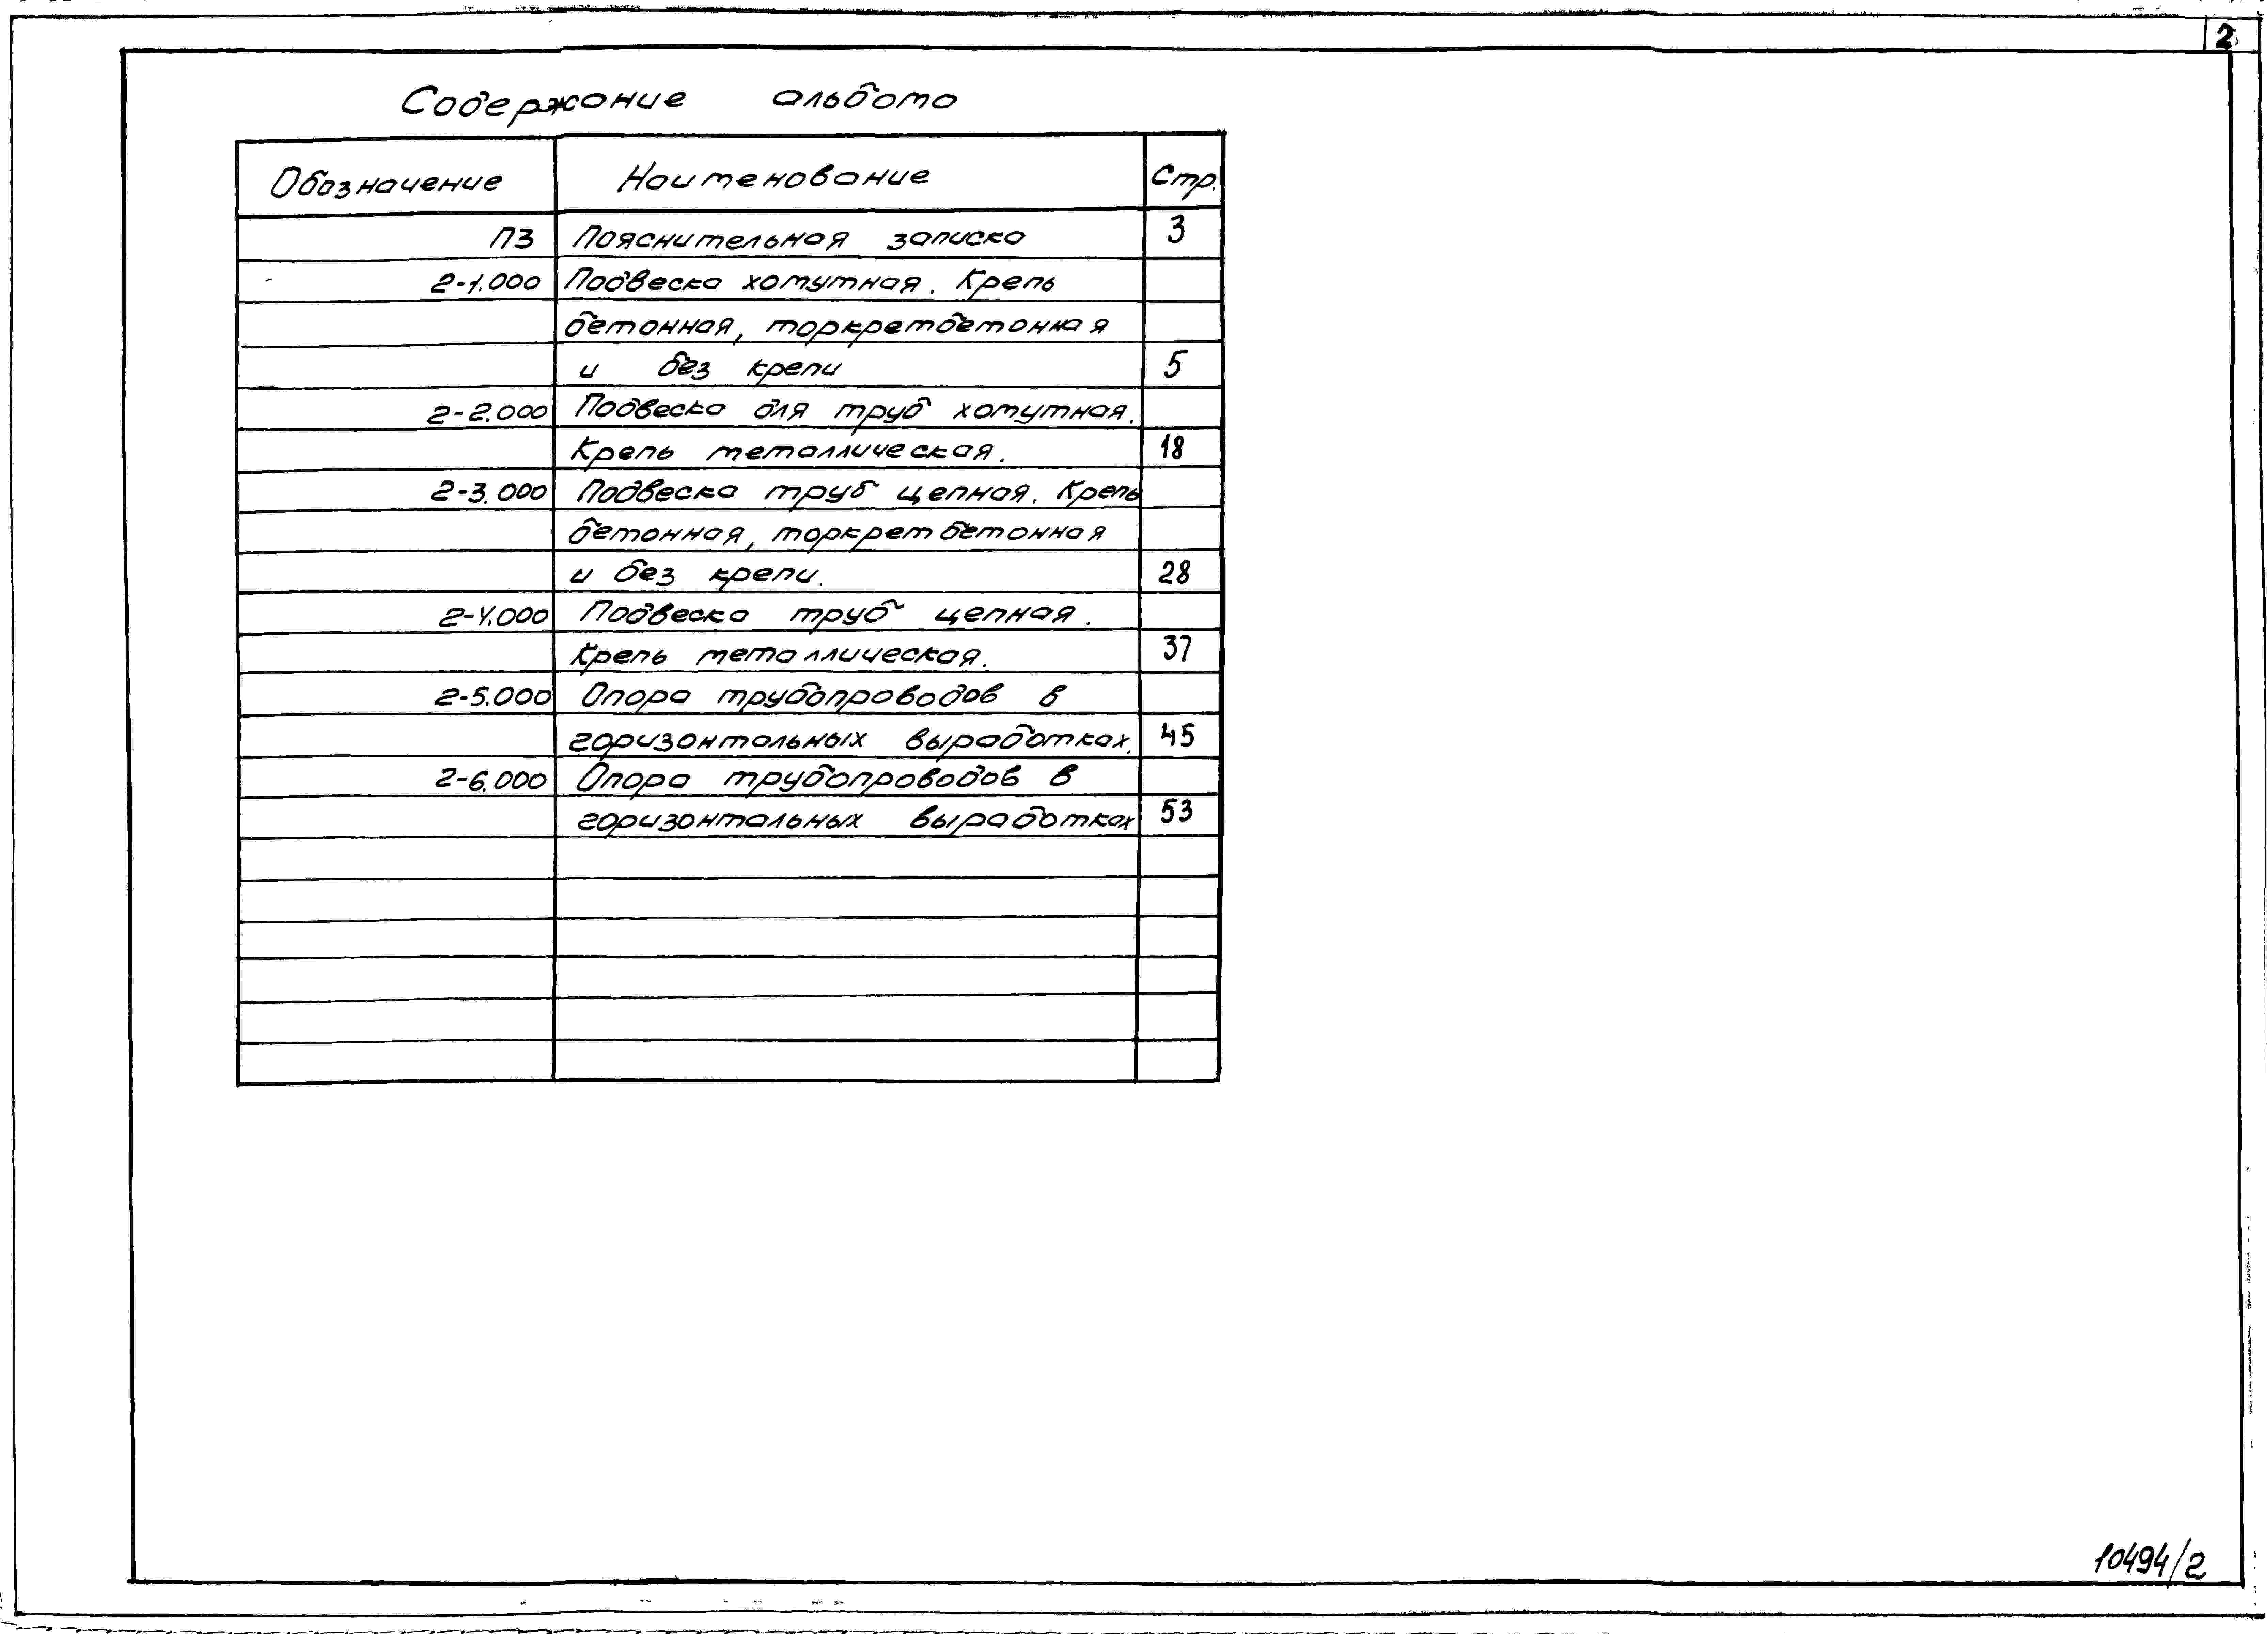 2
Содержание альбома
Обозначение Наименование Стр.
ПЗ Пояснительная записка 3
2-1.000 Подвеска хомутная. Крепь
бетонная, торкретбетонная
и без крепи 5
2-2.000 Подвеска для труб хомутная.
Крепь металлическая. 18
2-3.000 Подвеска труб цепная. Крепь
бетонная, торкретбетонная
и без крепи. 28
2-4.000 Подвеска труб цепная.
Крепь металлическая. 37
2-5.000 Опора трубопроводов в
горизонтальных выработках. 45
2-6.000 Опора трубопроводов в
горизонтальных выработках 53
10494/2